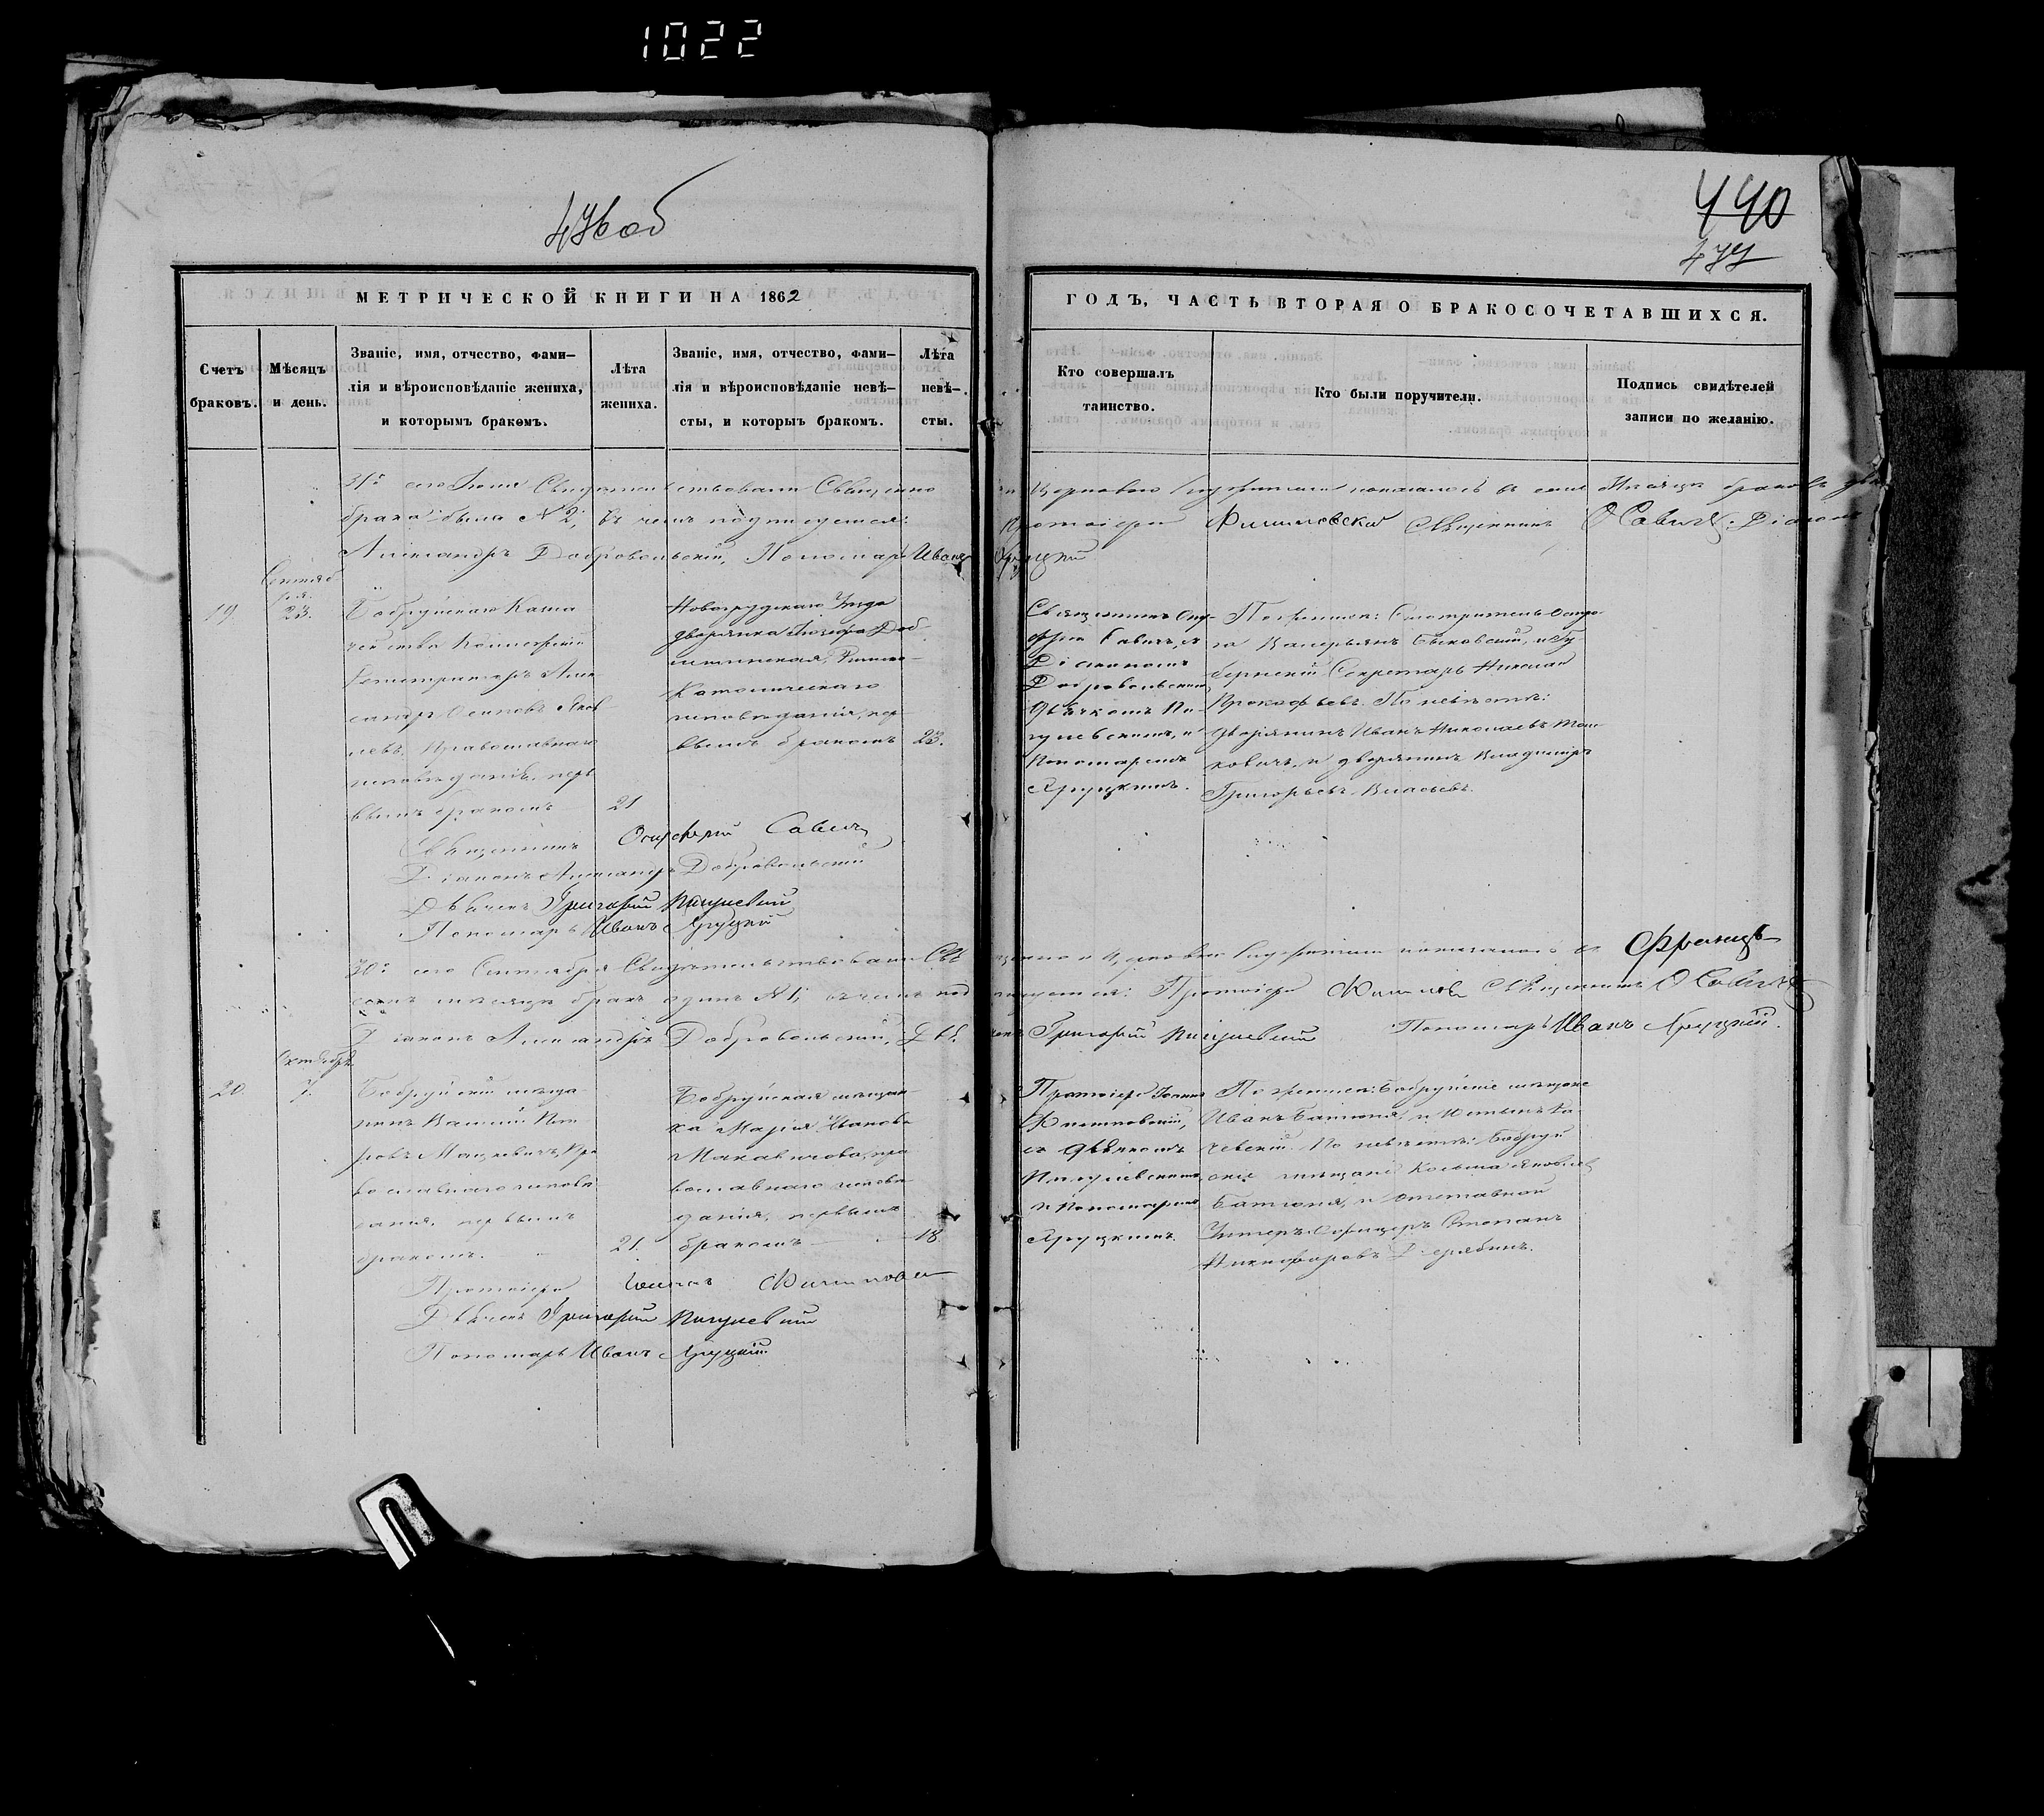 1022
476 об
440
477
МЕТРИЧЕСКОЙ КНИГИ НА 1862
ГОДЪ, ЧАСТЬ ВТОРАЯ О БРАКОСОЧЕТАВШИХСЯ.
Счетъ браковъ.
Мѣсяцъ и день.
Званіе, имя, отчество, фами-
лія и вѣроисповѣданіе жениха,
и которымъ бракомъ.
Лѣта
жениха.
Званіе, имя, отчество, фами-
лія и вѣроисповѣданіе невѣ-
сты, и которыъ бракомъ.
Лѣта
невѣ-
сты.
Кто совершалъ
таинство.
Кто были поручители.
Подпись свидѣтелей
записи по желанію.
31го сего Свидѣтельствовали Священно
и Церковно служители показаннаго въ семъ мѣсяцѣ браковъ
брака было № 2, въ чемъ подписуемся:
Протоіерей Священникъ О Савичъ. Діаконъ
Александръ Добровольскій, Пономарь Иванъ Яруцкій
Сентяб
ря
19.
23.
Бобруйскаго Казна
чейства Коллежскій
Регистраторъ Алек
сандръ Осиповъ Яков
левъ, Православнаго
исповѣданія, пер
вымъ бракомъ
21
Новогрудскаго Уѣзда
дворянка
Римско-
Католическаго
исповѣданія, пер
вымъ бракомъ
23.
Священникъ Ону-
фрій Савичъ, съ
Діакономъ
Добровольскимъ,
Дьячкомъ Пи-
гулевскимъ, и
Пономаремъ
Яруцкимъ.
По женихѣ: Смотритель Остро-
га Валерьянъ Быковскій, и Гу-
бернскій Секретарь Николай
Прокофьевъ. По невѣстѣ:
дворянинъ Иванъ Николаевъ
и дворянинъ Владиміръ
Григорьевъ Власьевъ.
Священникъ Онуфрій Савичъ
Діаконъ Александръ Добровольскій
Дьячекъ Григорій Пигулевскій
Пономарь Иванъ Яруцкій
30го сего Сентября Свидѣтельствовали Свя
щенно и Церковно служители показаннаго въ
семъ мѣсяцѣ бракъ одинъ № 1, въ чемъ под
писуемся: Протоіерей Священникъ О Савичъ
Діаконъ Александръ Добровольскій, Дья
чекъ Григорій Пигулевскій Пономарь Иванъ Яруцкій.
Октябрь
20.
7.
Бобруйскій мѣща
нинъ Василій Пет
ровъ Мацкевичъ, Пра
вославнаго исповѣ
данія, первымъ
бракомъ.
21.
Бобруйская мѣщан
ка Марія Иванова
Макавичова, пра
вославнаго исповѣ
данія, первымъ
бракомъ
18
Протоіерей Іоаннъ
съ Дьячкомъ
Пигулевскимъ
и Пономаремъ
Яруцкимъ.
По женихѣ: Бобруйскіе мѣщане
Иванъ Батюня, и Устинъ Ка-
чевскій. По невѣстѣ: Бобруй
скіе мѣщане Козьма Яковлев
Батюня, и отставной
Унтеръ-Офицеръ Степанъ
Никифоровъ Дерябинъ.
Протоіерей Іоаннъ
Дьячекъ Григорій Пигулевскій
Пономарь Иванъ Яруцкій